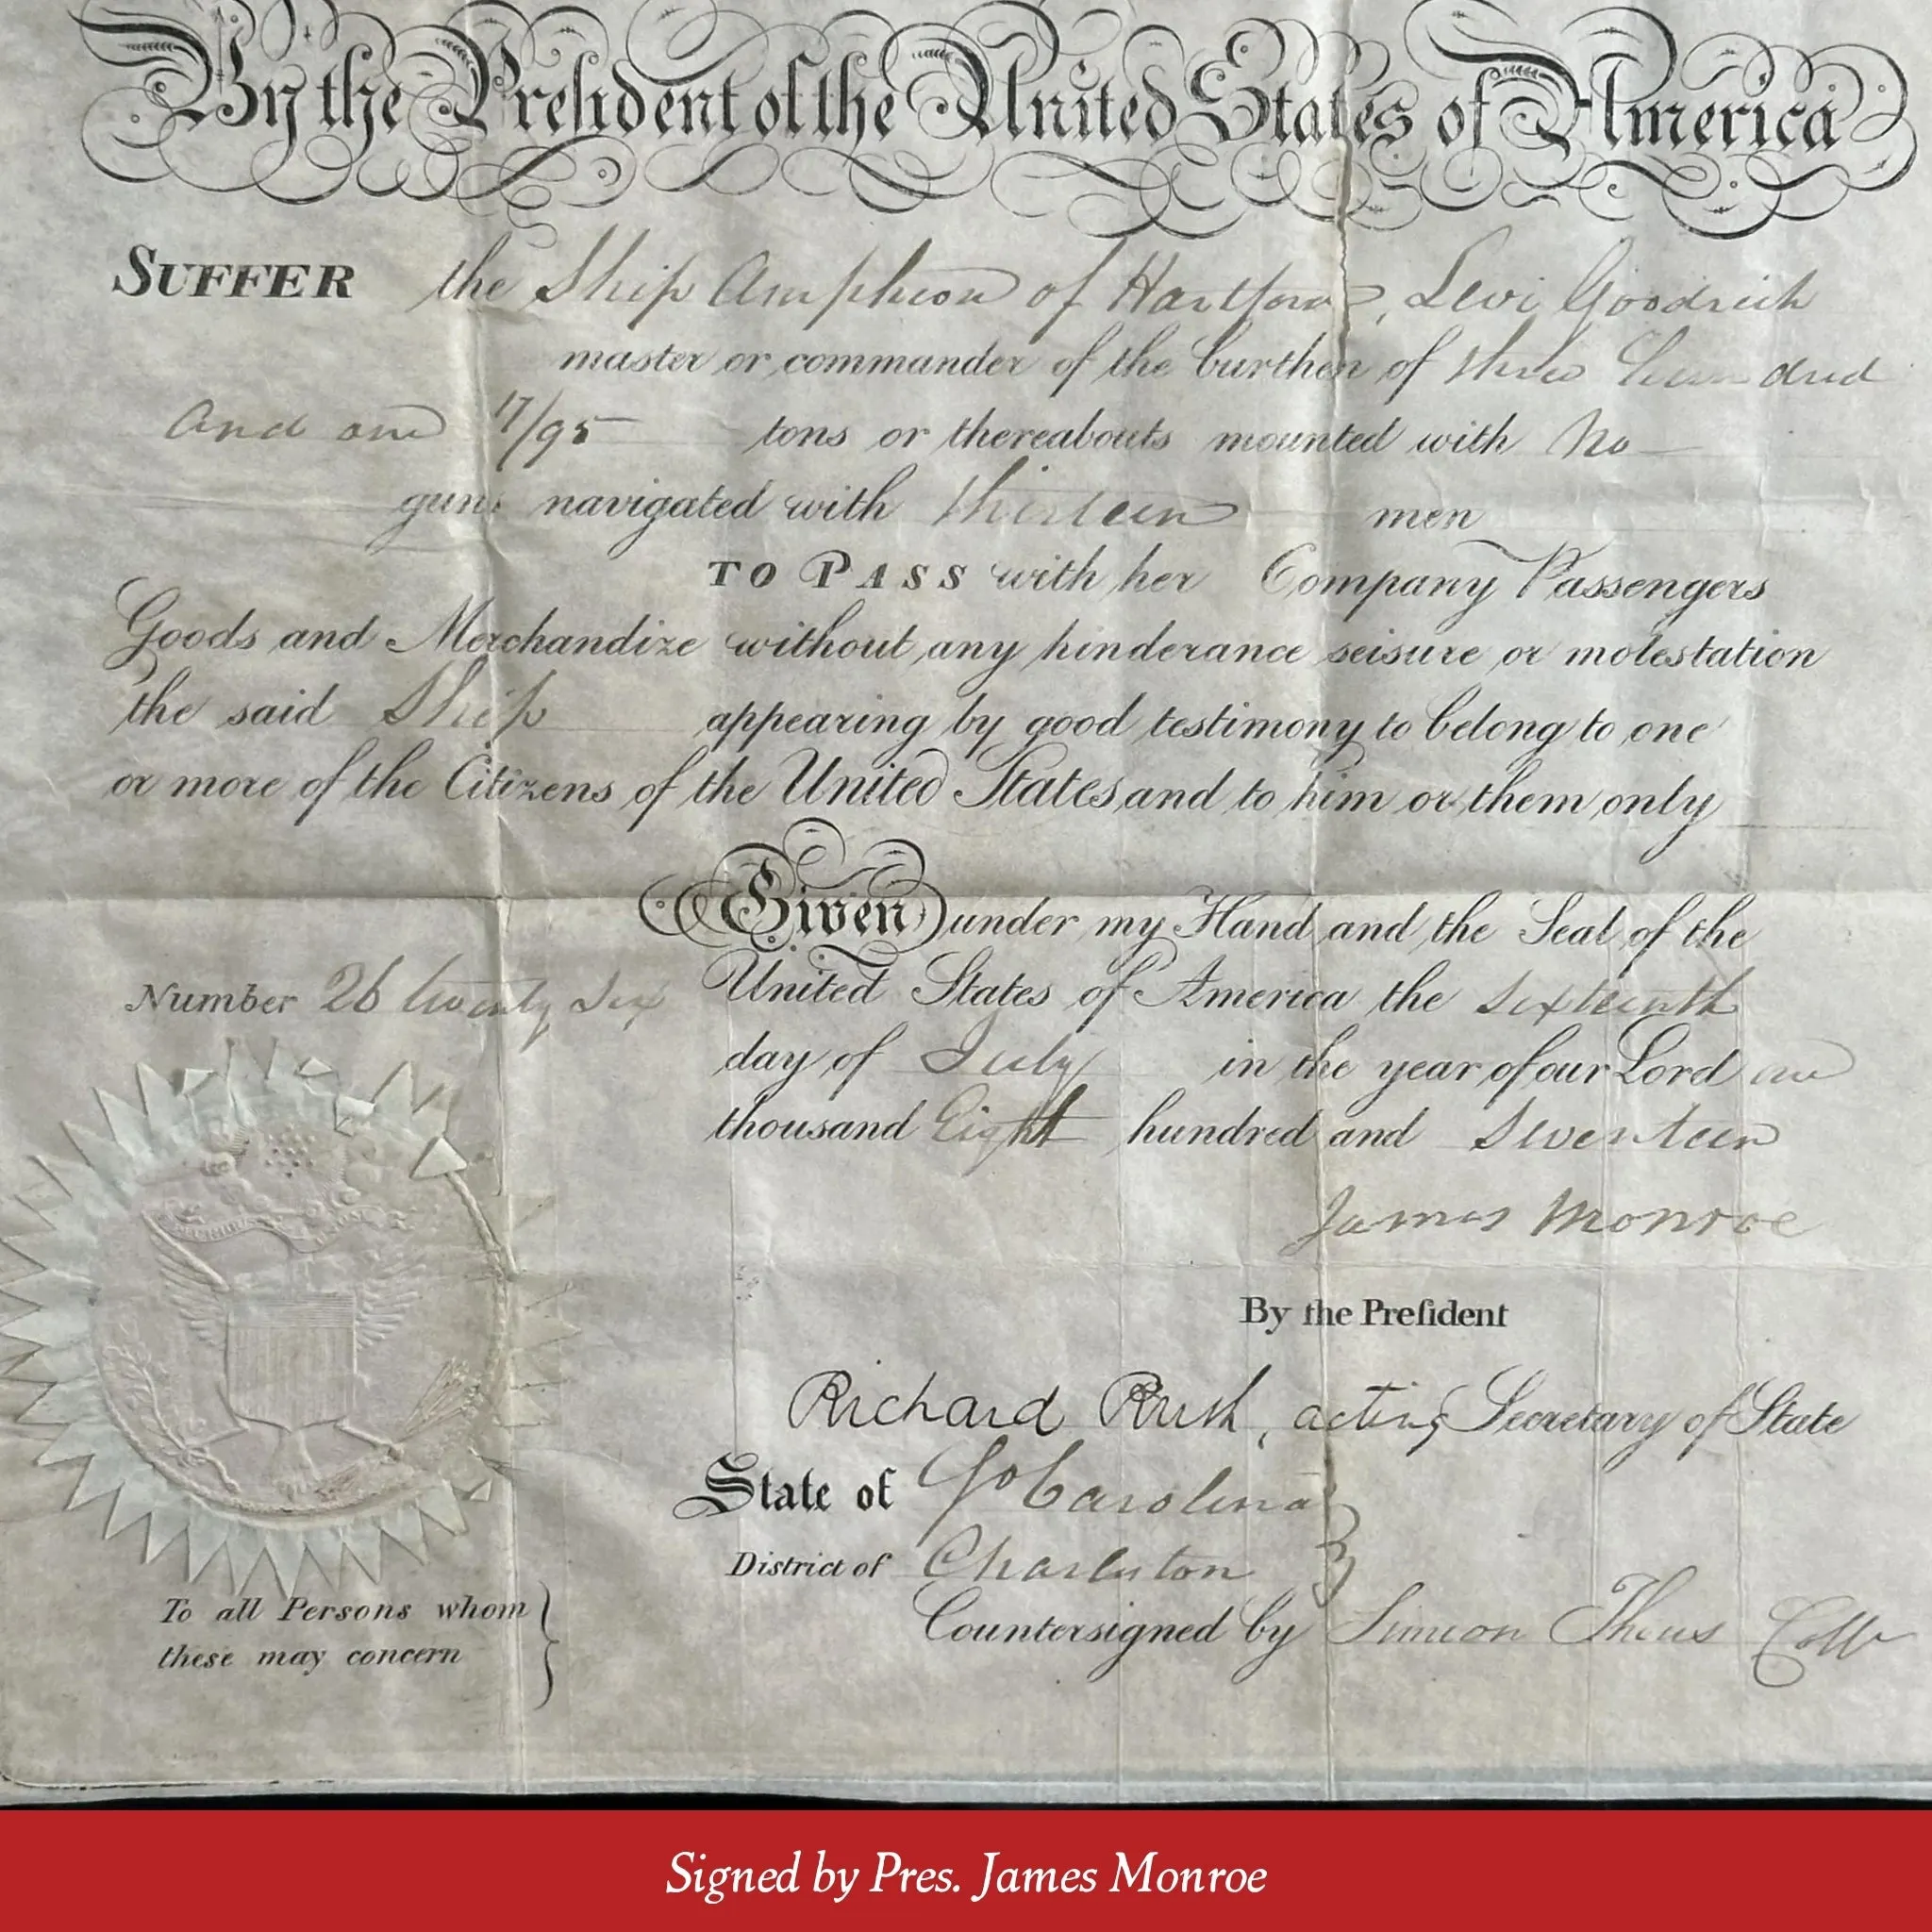 By the Preſident of the United States of America
SUFFER the Ship Amphion of Hartford, Levi Goodrich
master or commander of the burthen of three hundred
and one 17/95 tons or thereabouts mounted with No
guns navigated with thirteen men
TO PASS with her Company Passengers
Goods and Merchandize without any hinderance seisure or molestation
the said Ship appearing by good testimony to belong to one
or more of the Citizens of the United States and to him or them only
Given under my Hand and the Seal of the
Number 26 twenty Six United States of America the Sixteenth
day of July in the year of our Lord one
thousand Eight hundred and Seventeen
James Monroe
By the Preſident
Richard Rush, acting Secretary of State
State of So Carolina
District of Charleston
To all Persons whom
these may concern
Countersigned by Simeon Theus Collr
Signed by Pres. James Monroe